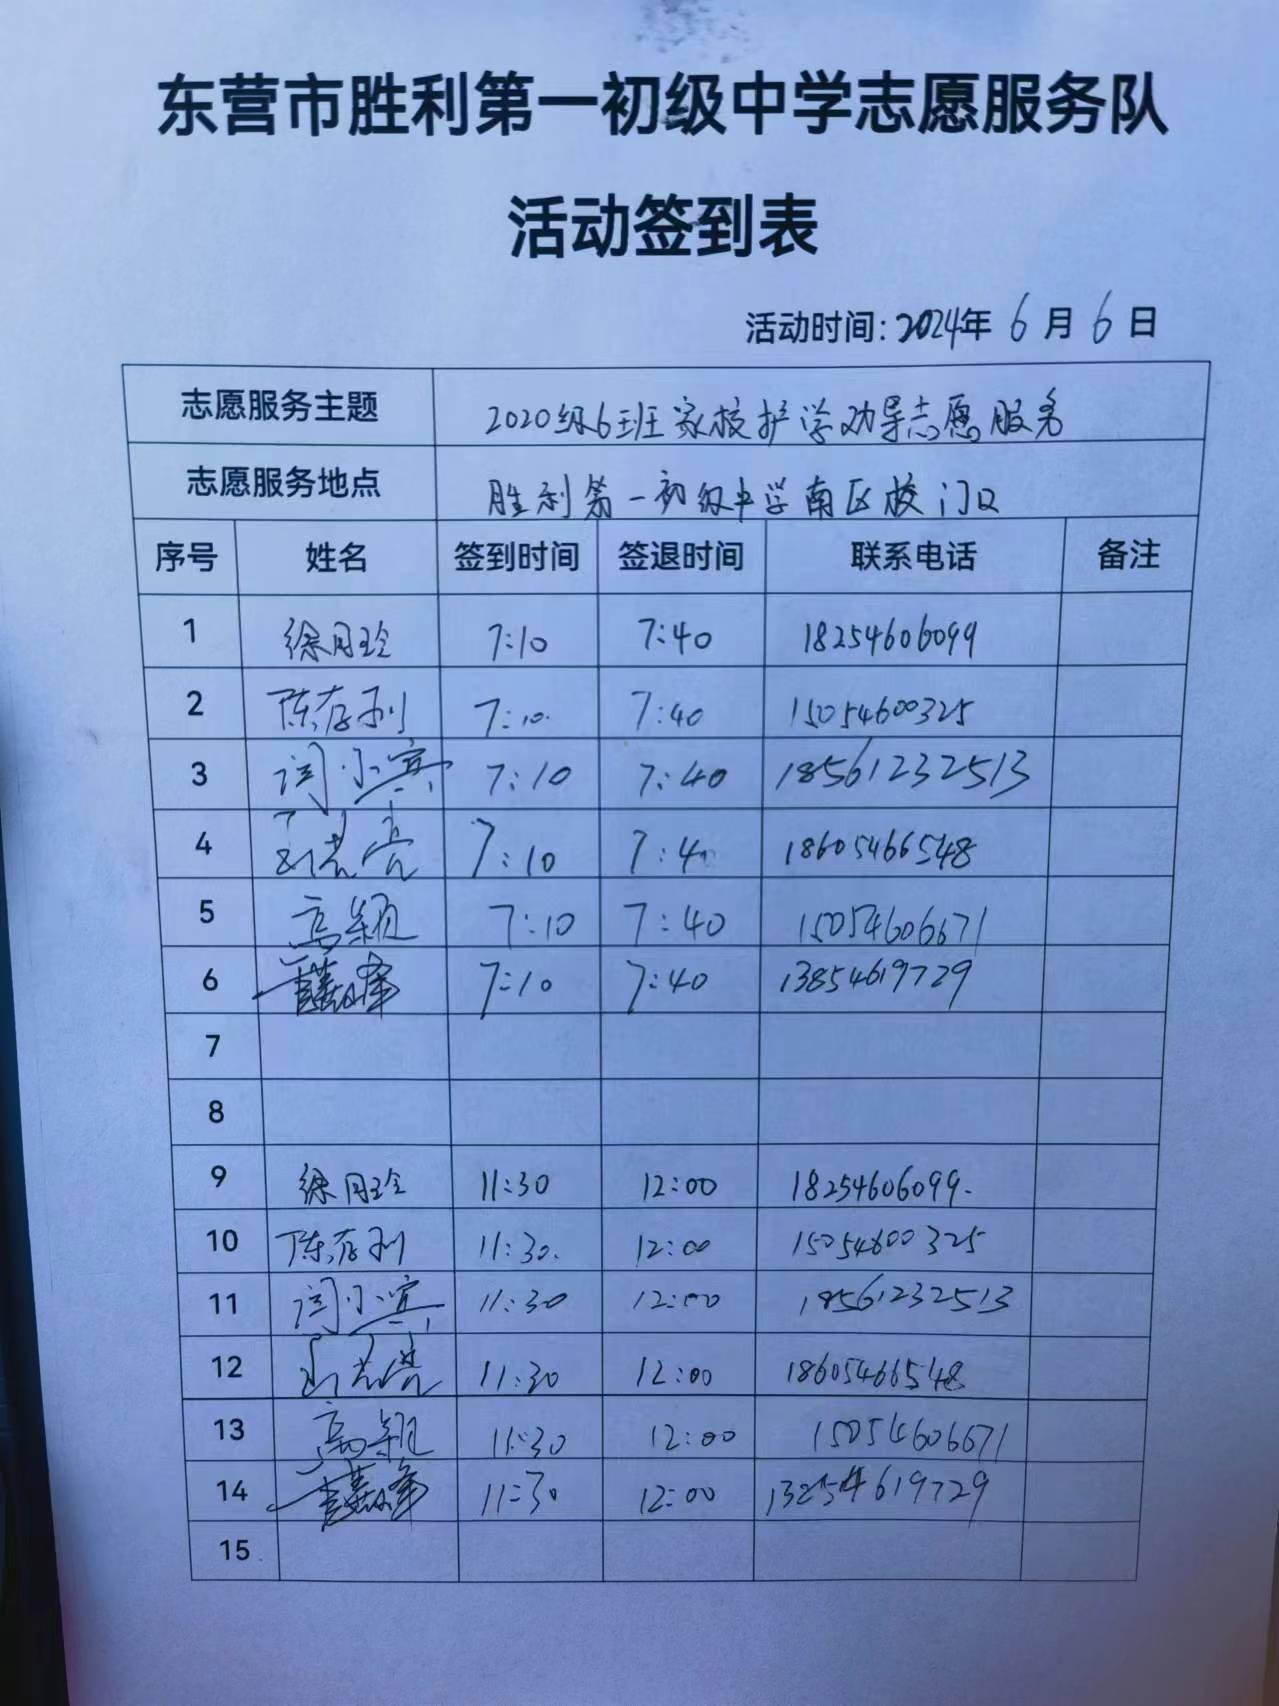 东营市胜利第一初级中学志愿服务队
活动签到表
活动时间：2024年 6 月 6 日
志愿服务主题 2020级6班家校护学劝导志愿服务
志愿服务地点 胜利第一初级中学南区校门口
序号 姓名 签到时间 签退时间 联系电话 备注
1 徐月玲 7:10 7:40 18254606099
2 陈存利 7:10 7:40 15054600325
3 闫小宾 7:10 7:40 18561232513
4 7:10 7:40 18605466548
5 高颖 7:10 7:40 15054606671
6 7:10 7:40 13854619729
7
8
9 徐月玲 11:30 12:00 18254606099.
10 陈存利 11:30 12:00 15054600325
11 闫小宾 11:30 12:00 18561232513
12 11:30 12:00 18605466548
13 高颖 11:30 12:00 15054606671
14 11:30 12:00
15